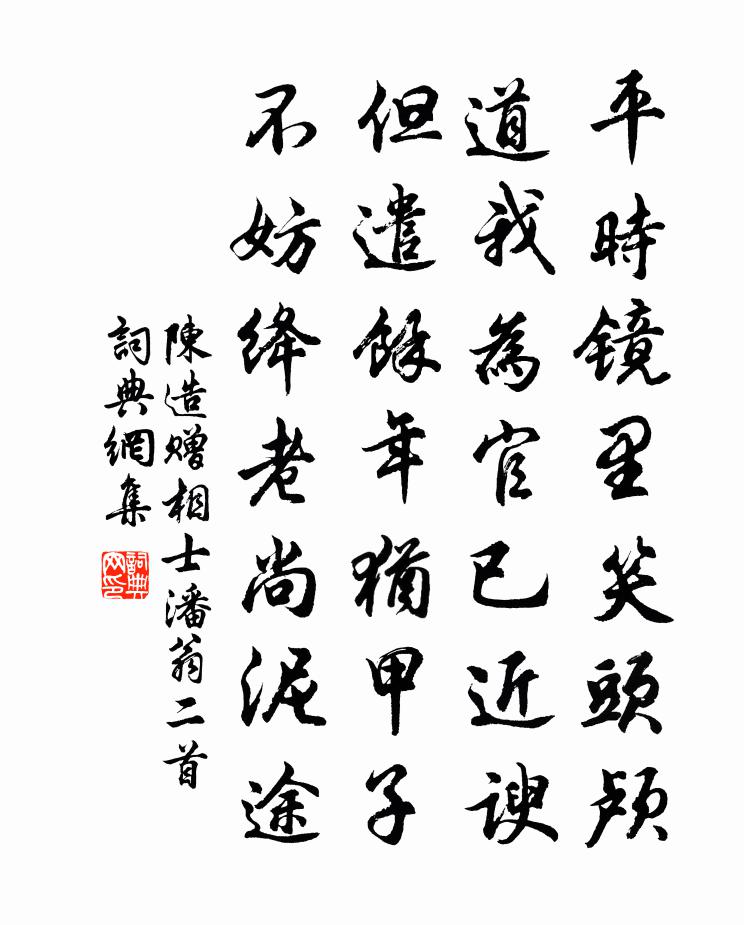 平時镜里笑頭颅
道我為官已近諛
但遣餘年猶甲子
不妨绛老尚泥途
陳造赠相士潘翁二首
詞典網集
詞典网印